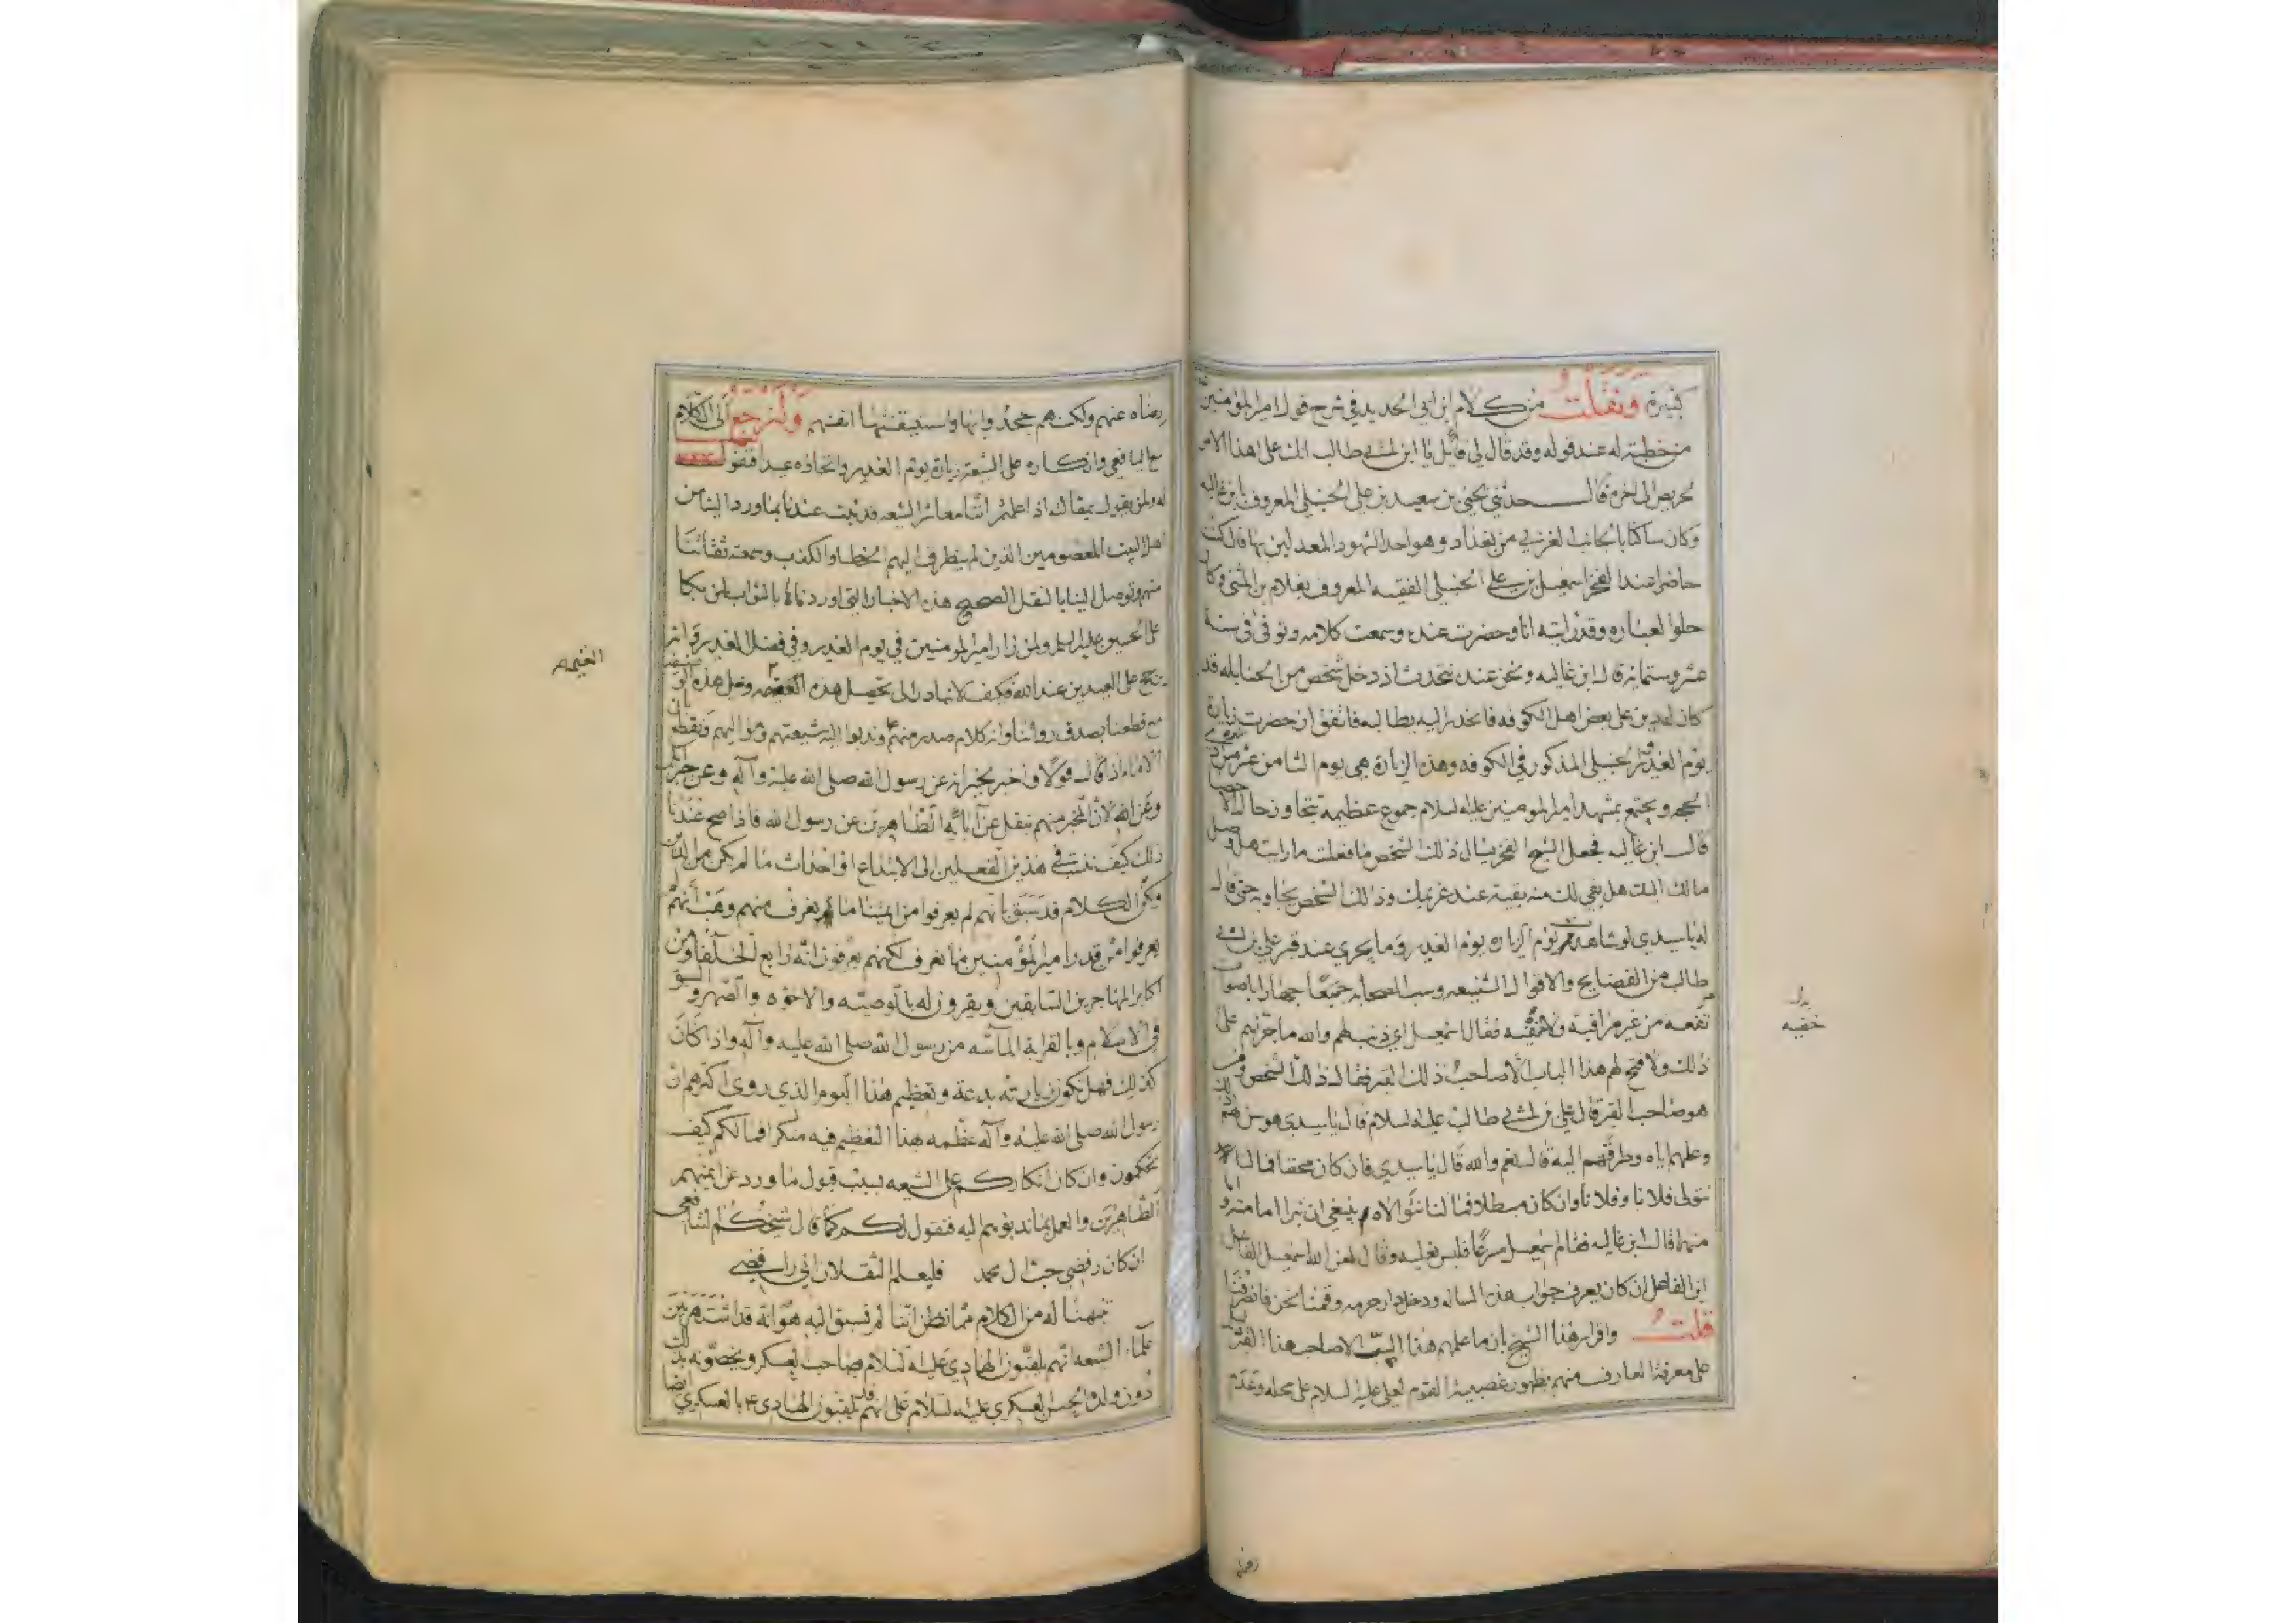 كثيرة ونقلت من كلام ابن ابي الحديد في شرح قول امير المؤمنين
من خطبة له عند قوله وقد قال لي قائل يا ابن ابي طالب انك على هذا الامر
لحريص الى اخره قال حدثني يحيى بن سعيد بن علي الحنبلي المعروف بابن غاليه
وكان ساكنا بالجانب الغربي من بغداد وهو احد الشهود المعدلين بها قال كنت
حاضرا عند الفخر اسمعيل بن علي الحنبلي الفقيه المعروف بغلام بن المثنى وكان
حلوا لعباره وقد رايته انا وحضرت عنده وسمعت كلامه وتوفى في سنة
عشر وستمايه قال ابن غاليه ونحن عنده نتحدث اذ دخل شخص من الحنابله قد
كان له دين على بعض اهل الكوفه فانحدر اليه يطالبه فاتفق ان حضرت زيارة
يوم الغدير والحنبلي المذكور في الكوفه وهذه الزيارة هي يوم الثامن عشر من ذي
الحجه ويجتمع بمشهد امير المومنين عليه السلام جموع عظيمة تتجاوز حد الاحصا
قال ابن غاليه فجعل الشيخ الفخر يسال ذلك الشخص ما فعلت ما رايت هل وصل
مالك اليك هل بقي لك منه بقية عند غريمك وذلك الشخص يجاوبه حتى قال
له يا سيدي لو شاهدت يوم الزياره يوم الغدير وما يجري عند قبر علي بن ابي
طالب من الفضايح والاقوال الشنيعه وسب الصحابه جميعا جهارا باصوات
مرتفعه من غير مراقبة ولا تقية فقال اسمعيل اي ذنب لهم والله ما جراهم على
ذلك ولا فتح لهم هذا الباب الا صاحب ذلك القبر فقال ذلك الشخص ومن
هو صاحب القبر قال علي بن ابي طالب عليه السلام قال يا سيدي هو سن لهم ذلك
وعلمهم اياه وطرقهم اليه قال نعم والله قال يا سيدي فان كان محقا فما لنا
نتولى فلانا وفلانا وان كان مبطلا فما لنا نتولاه ينبغي ان نبرا اما منه او
منهما قال ابن غاليه فقام اسمعيل مسرعا فلبس نعليه وقال لعن الله اسمعيل الفاعل
ابن الفاعل ان كان يعرف جواب هذه المساله ودخل دار حرمه وقمنا نحن فانصرفنا
قلت واقرار هذا الشيخ بان ما علمهم هذا السب الا صاحب هذا القبر
على معرفة العارف منهم بظهور غصبية القوم لعلي عليه السلام على محله وعدم
بدل
خفيه
رضاه
رضاه عنهم ولكنهم جحدوا بها واستيقنتها انفسهم ولنرجع الى الكلام
مع اليافعي وانكاره على الشيعة زيارة يوم الغدير واتخاذه عيدا فنقول
له ولمن يقول بمقاله اذا علمتم اننا معاشر الشيعه قد ثبت عندنا بما ورد الينا من
اهل البيت المعصومين الذين لم يتطرق اليهم الخطا والكذب وسمعته ثقاتنا
منهم وتوصل الينا بالنقل الصحيح هذه الاخبار التي اوردناها بالثواب لمن بكا
على الحسين عليه السلم ولمن زار امير المومنين في يوم الغدير وفي فضل الغدير وانه
يرجح على العيدين عند الله فكيف لا نبادر الى تحصيل هذه الغنيمه وهل هذه
مع قطعنا بصدق رواتنا وانه كلام صدر منهم وندبوا اليه شيعتهم ومواليهم فنقطع بان
الامام اذا قال قولا واخبر بخبر انه عن رسول الله صلى الله عليه وآله وعن جبرئيل
وعن الله لان المخبر منهم ينقل عن آبائه الطاهرين عن رسول الله فاذا صح عندنا
ذلك كيف ننسب في هذين الفعلين الى الابتداع او احداث ما لم يكن من الدين
ولكن الكلام قد سبق بانهم لم يعرفوا من ائمتنا ما لم يعرف منهم وهب انهم
لم يعرفوا من قدر امير المؤمنين ما نعرف لكنهم يعرفون انه رابع الخلفا ومن
اكابر المهاجرين السابقين ويقرون له بالوصيه والاخوه والصهر والسبق
في الاسلام وبالقرابة الماسه من رسول الله صلى الله عليه وآله واذا كان
كذلك فهل تكون زيارته بدعة وتعظيم هذا اليوم الذي روى اكثرهم ان
رسول الله صلى الله عليه وآله عظمه هذا التعظيم فيه منكرا فما لكم كيف
تحكمون وان كان انكاركم على الشيعه بسبب قبول ما ورد عن ائمتهم
الطاهرين والعمل بما ندبوهم اليه فنقول لكم كما قال شيخكم الشافعي
ان كان رفضي حب ال محمد فليعلم الثقلان اني رافضي
تنبيه هنا له من الكلام مما نظن اننا لم نسبق اليه هو انه قد اشتهر بين
علماء الشيعه انهم يلقبون الهادي عليه السلام صاحب العسكر ويخصونه بذلك
دون ولده الحسن العسكري عليه السلام على انهم قد يلقبون الهادي ع بالعسكري ايضا
الغنيمه